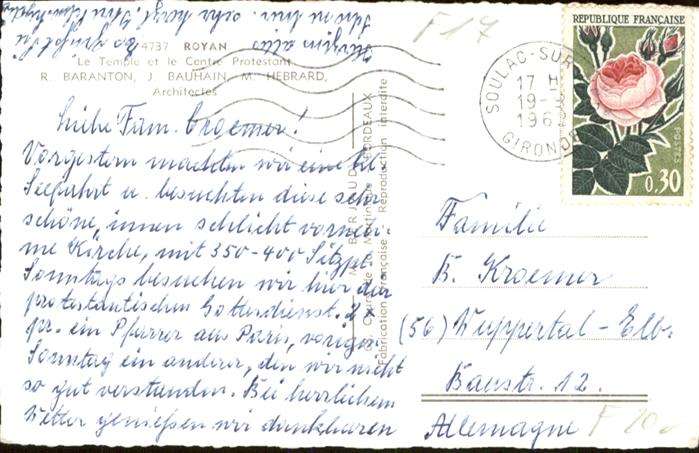 4737 ROYAN
Le Temple et le Centre Protestant
R. BARANTON, J. BAUHAIN, M. HEBRARD,
Architectes
Liebe Fam. Kroemer!
Vorgestern machten wir eine kl.
Seefahrt u. besuchten diese sehr
schöne, innen schlicht vorneh-
me Kirche, mit 350-400 Sitzpl.
Sonntags besuchen wir hier den
protestantischen Gottesdienst. 2 x
pr. ein Pfarrer aus Paris, vorigen
Sonntag ein anderer, den wir nicht
so gut verstanden. Bei herrlichem
Wetter genießen wir dankbaren
BORDEAUX
Fabrication Française Reproduction interdite
SOULAC-SUR
17 H
19-
196
GIRONDE
REPUBLIQUE FRANÇAISE
POSTES
0,30
F 17
Familie
K. Kroemer
(56) Wuppertal-Elb.
Baustr. 12.
Allemagne
F 20